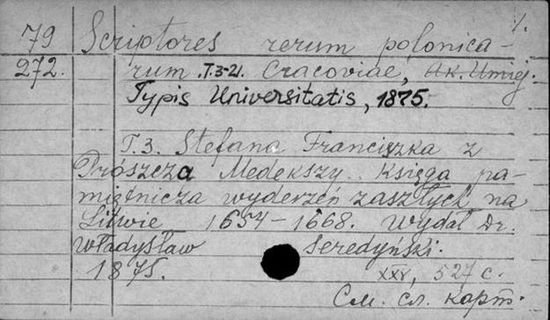 1.
79 Scriptores rerum polonica-
272. rum. T.3-21. Cracoviae, Ak. Umiej.
Typis Universitatis, 1875.
T.3. Stefana Franciszka z
Prószcza Medekszy. Księga pa-
miętnicza wyderzeń zaszłych na
Litwie 1654-1668. Wydał Dr.
Władysław Seredyński.
1875. XXV, 527 с.
См. сл. карт.